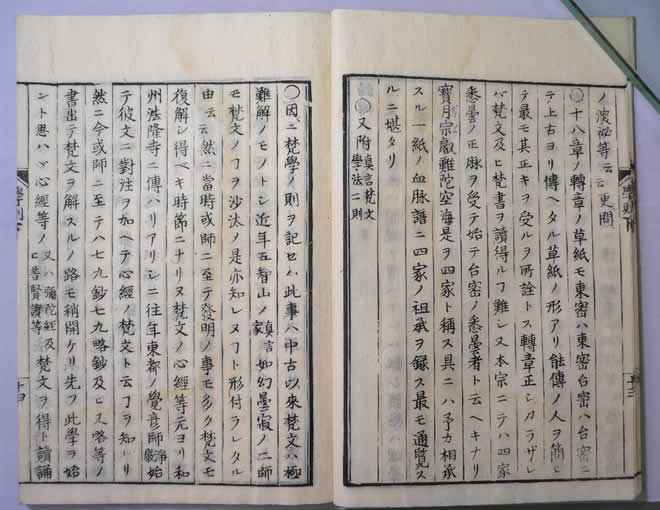 ノ深祕等云云更問
〇十八章ノ轉章ノ草紙モ東密ハ東密台密ハ台密ニ
テ上古ヨリ傳ヘタル草紙ノ形アリ能傳ノ人ヲ簡ヒ
テ最モ其正キヲ受ルヲ所詮トス轉章正シカラザレ
バ梵文及ヒ梵書ヲ讀得ルヿ難シ又本宗ニテハ四家
悉曇ノ正脉ヲ受テ始テ台密ノ悉曇者ト云ヘキナリ
寶月宗叡難陀空海是ヲ四家ト稱ス具ニハ予カ相承
スル一紙ノ血脉譜ニ四家ノ祖承ヲ録ス最モ通覽ス
ルニ堪タリ
〇又附眞言梵文學法二則
十三
〇因ニ梵學ノ則ヲ記セハ此事ハ中古以來梵文ハ極
難解ノモノトシ近年五智山ノ眞言如幻曇寂ノ二師
モ梵文ノヿヲ沙汰ノ是亦知レヌヿト形付ラレタル
由云云然ニ當時或師ニ至テ發明ノ事モ多ク梵文モ
復解シ得ベキ時節ニナリヌ梵文ノ心經等元ヨリ和
州法隆寺ニ傳ハリアリシニ往年東都ノ覺彦師淨嚴始
テ彼文ニ對注ヲ加ヘテ心經ノ梵文ト云ヿヲ知レリ
然ニ今或師ニ至テハ七九鈔七九略鈔及ヒ又略等ノ
書出テ梵文ヲ解スルノ路モ稍開ケリ先ヅ此學ヲ始
ント思ハヾ心經等ノ又ハ彌陀經及ヒ普賢讃等梵文ヲ得ト讀誦
學則下
十四